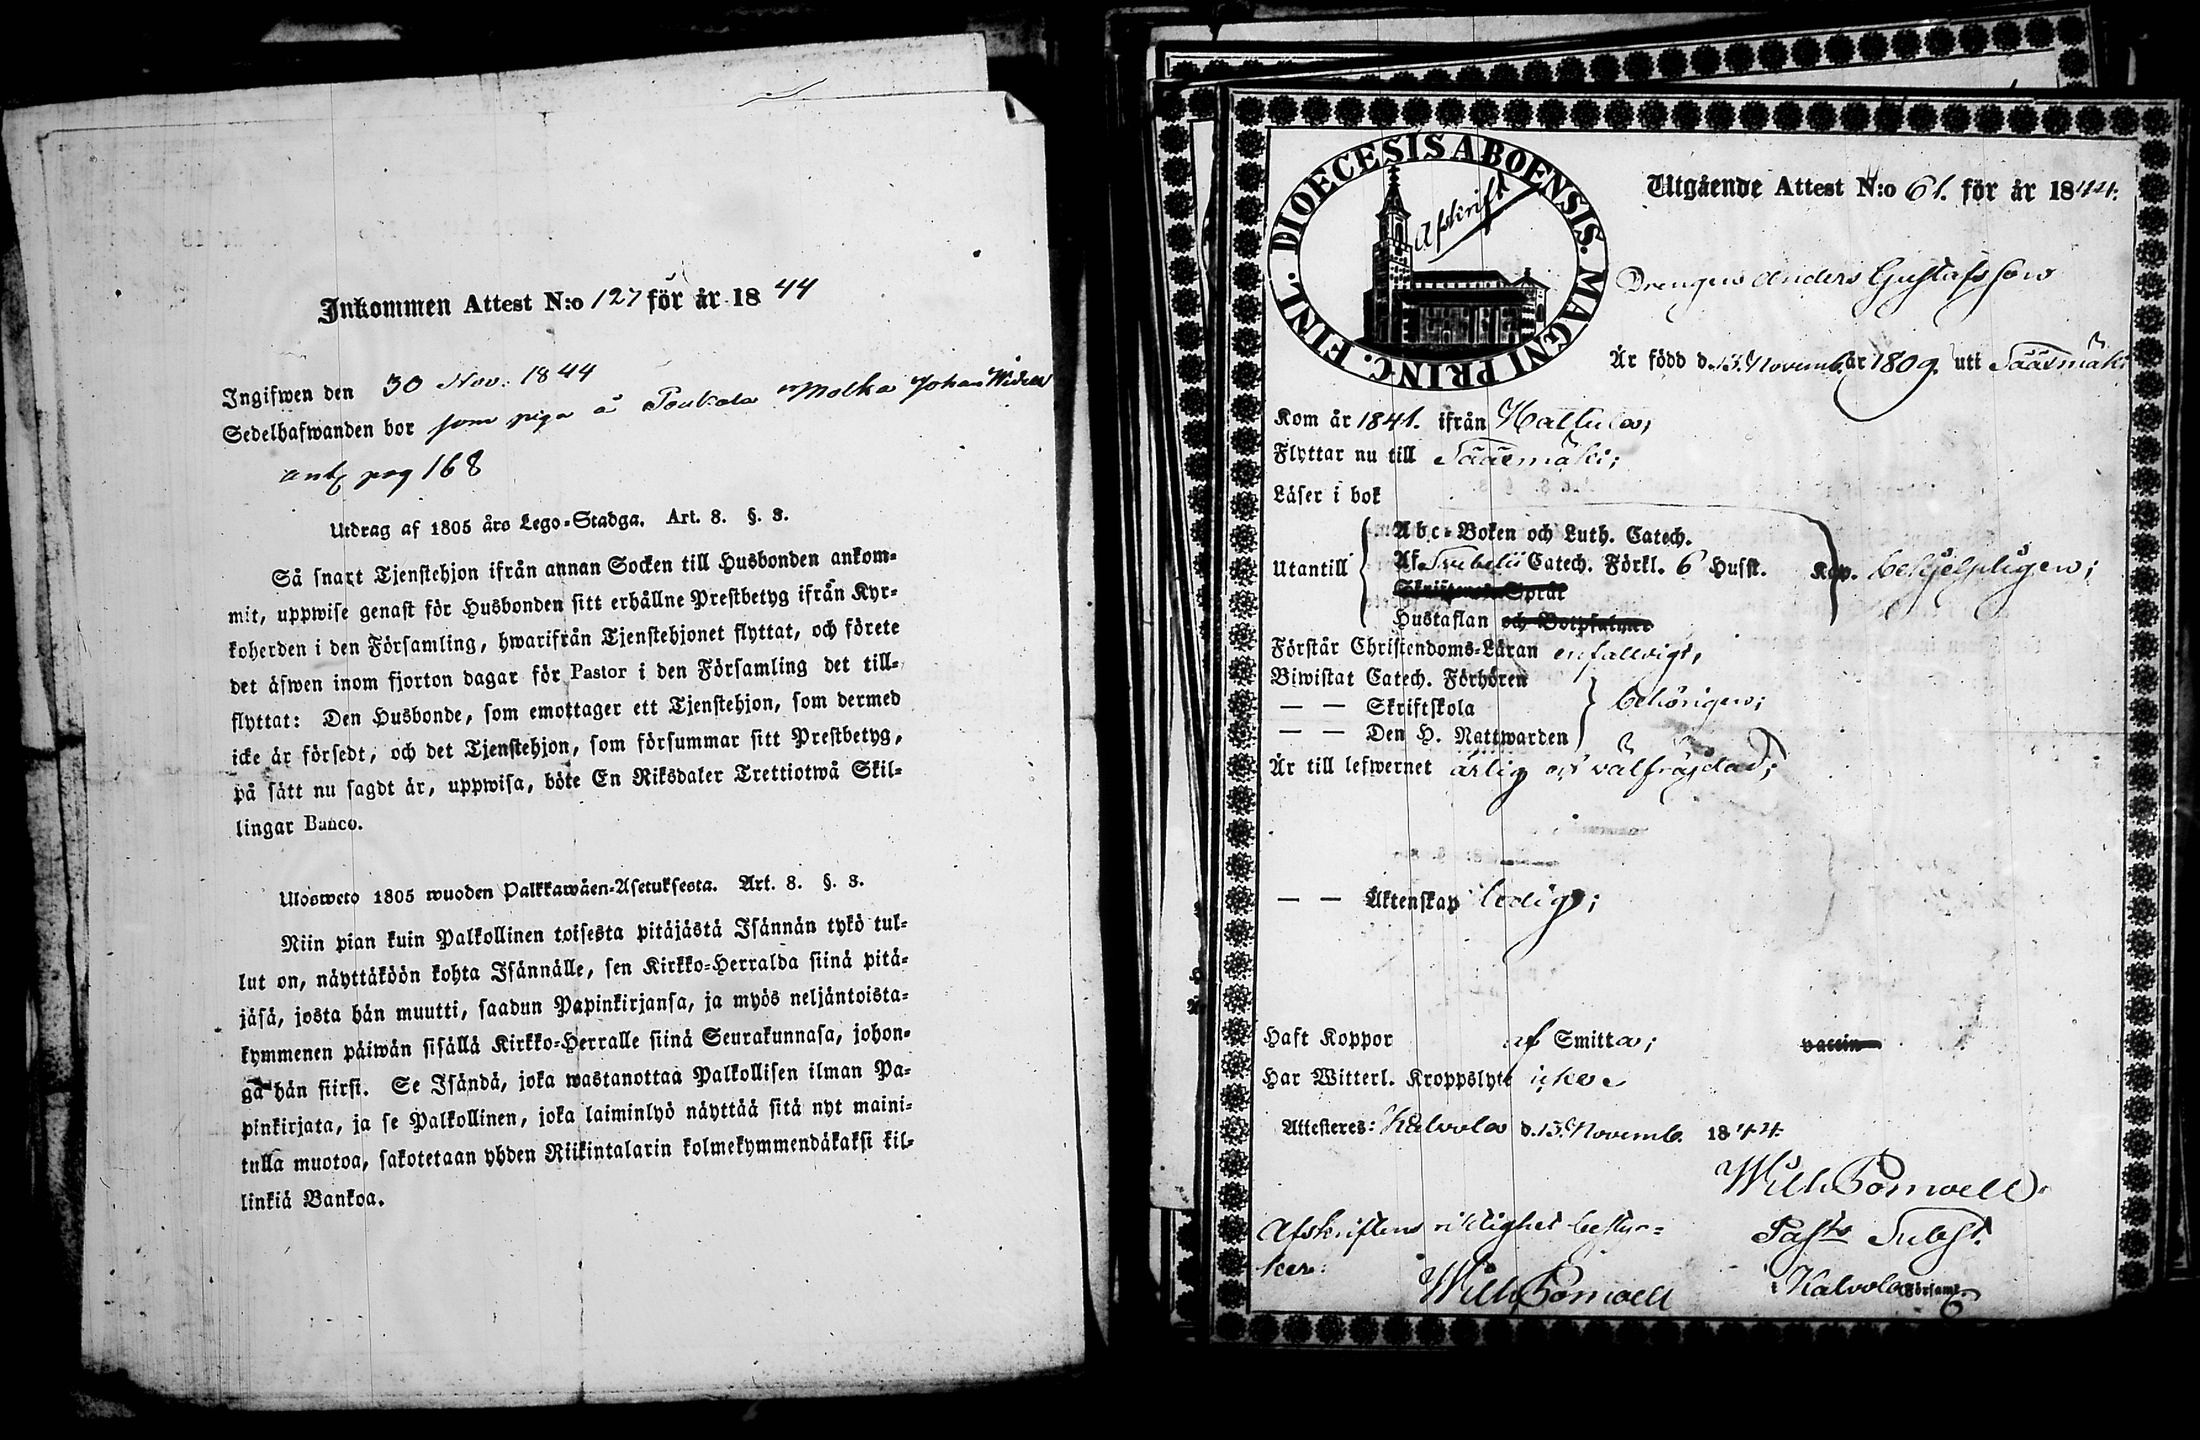 Inkommen Attest N:o 127 för år 1844
Ingifwen den 30 Nov. 1844
Sedelhafwanden bor som piga å Molka Johan
pag 168
Utdrag af 1805 års Lego-Stadga. Art. 8. §. 3.
Så snart Tjenstehjon ifrån annan Socken till Husbonden ankom-
mit, uppwise genast för Husbonden sitt erhållne Prestbetyg ifrån Kyr-
koherden i den Församling, hwarifrån Tjenstehjonet flyttat, och förete
det äfwen inom fjorton dagar för Pastor i den Församling det till-
flyttat: Den Husbonde, som emottager ett Tjenstehjon, som dermed
icke är försedt, och det Tjenstehjon, som försummar sitt Prestbetyg,
på sätt nu sagdt är, uppwisa, böte En Riksdaler Trettiotwå Skil-
lingar Banco.
Ulosweto 1805 wuoden Palkkawäen-Asetuksesta. Art. 8. §. 3.
Niin pian kuin Palkollinen toisesta pitäjästä Isännän tykö tul-
lut on, näyttäköön kohta Isännälle, sen Kirkko-Herralda siinä pitä-
jäsä, josta hän muutti, saadun Papinkirjansa, ja myös neljäntoista-
kymmenen päiwän sisällä Kirkko-Herralle siinä Seurakunnasa, johon-
ga hän siirsi. Se Isändä, joka wastanottaa Palkollisen ilman Pa-
pinkirjata, ja se Palkollinen, joka laiminlyö näyttää sitä nyt maini-
tulla muotoa, sakotetaan yhden Riikintalarin kolmekymmendäkaksi kil-
linkiä Bankoa.
DIOECESIS ABOENSIS. MAGNI PRINC. FINL.
Afskrift
Utgående Attest N:o 61. för år 1844.
Drengen Anders Gustafsson
Är född d. 13. Novemb. år 1809. uti Sääxmäki
Kom år 1841. ifrån Hattula;
Flyttar nu till Sääxmäki;
Läser i bok
Utantill Abc-Boken och Luth. Catech.
Af Svebelii Catech. Förkl. 6 Husst. Kap. behjelpligen;
Språk
Hustaflan och Botpsalmer
Förstår Christendoms-Läran enfaldigt,
Biwistat Catech. Förhören
— — Skriftskola behörigen;
— — Den H. Nattwarden
Är till lefwernet ärlig och välfräjdad;
— — Äktenskap ledig;
Haft Koppor af Smitta; vaccin
Har Witterl. Kroppslyte icke.
Attesteres: Kalvola d. 13. Novemb. 1844.
Wilh Pomoell
Afskriftens riktighet bestyr-
ker:
Past. Subst.
Wilh Pomoell
i Kalvola Församl.